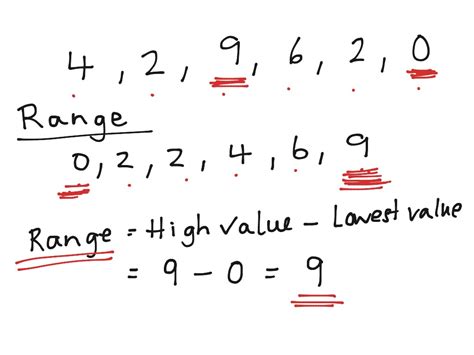 4, 2, 9, 6, 2, 0
Range
0, 2, 2, 4, 6, 9
Range = High value - Lowest value
= 9 - 0 = 9